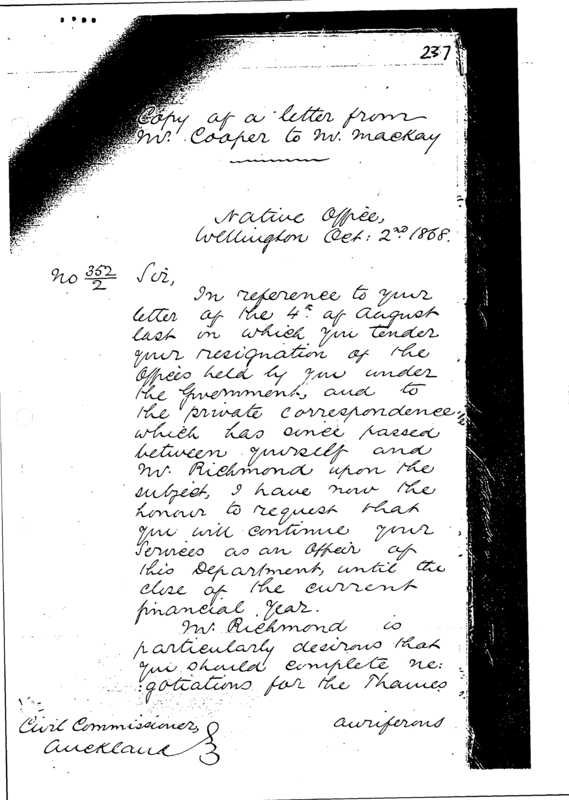 237
Copy of a letter from
Mr. Cooper to Mr. Mackay
Native Office,
Wellington Oct: 2nd 1868.
No 352/2 Sir,
In reference to your
letter of the 4th of August
last in which you tender
your resignation of the
Offices held by you under
the Government, and to
the private correspondence
which has since passed
between yourself and
Mr. Richmond upon the
subject, I have now the
honour to request that
you will continue your
Services as an Officer of
this Department, until the
close of the current
financial Year.
Mr. Richmond is
particularly desirous that
you should complete ne:
:gotiations for the Thames
auriferous
Civil Commissioner,
Auckland